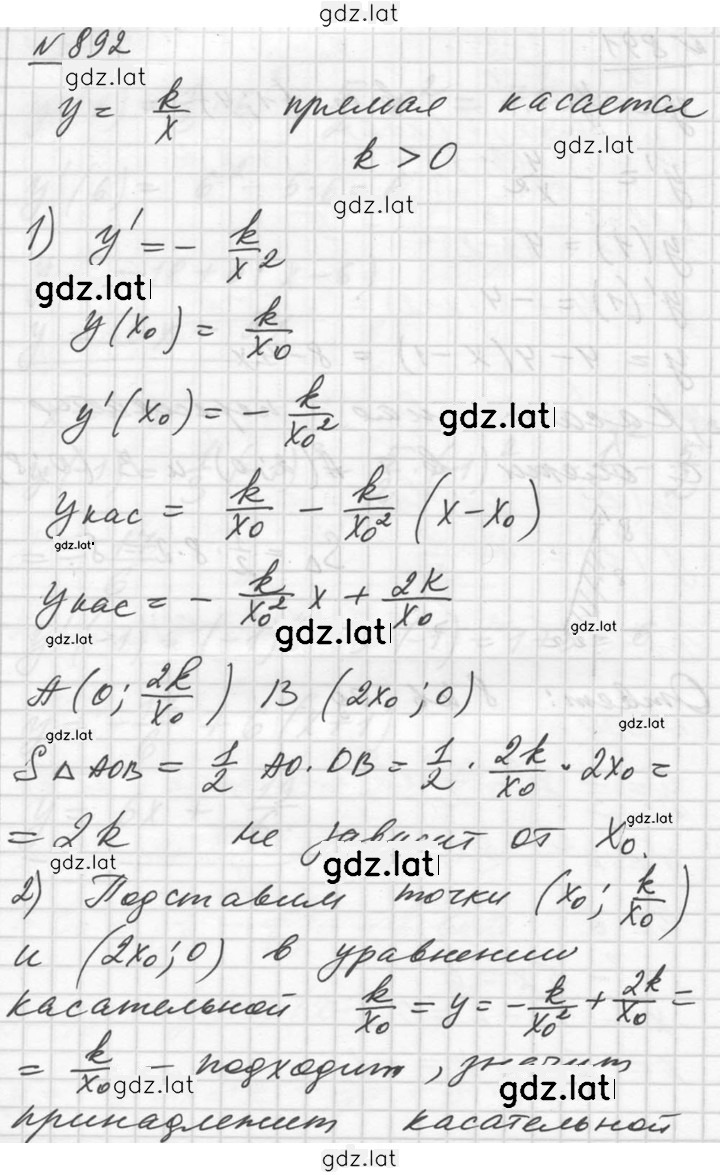 gdz.lat
№ 892
gdz.lat
y = k/x прямая касается
k > 0 gdz.lat
gdz.lat
1) y' = - k/x²
gdz.lat
y(x₀) = k/x₀
y'(x₀) = - k/x₀² gdz.lat
yкас = k/x₀ - k/x₀² (x-x₀)
gdz.lat
yкас = - k/x₀² x + 2k/x₀
gdz.lat gdz.lat gdz.lat
A(0; 2k/x₀) B (2x₀; 0)
gdz.lat gdz.lat
S△AOB = 1/2 AO·OB = 1/2 · 2k/x₀ · 2x₀ =
= 2k не зависит от x₀. gdz.lat
gdz.lat gdz.lat
2) Подставим точки (x₀; k/x₀)
и (2x₀; 0) в уравнении
касательной k/x₀ = y = - k/x₀² + 2k/x₀ =
= k/x₀ - подходит, значит
gdz.lat gdz.lat
принадлежит касательной
gdz.lat